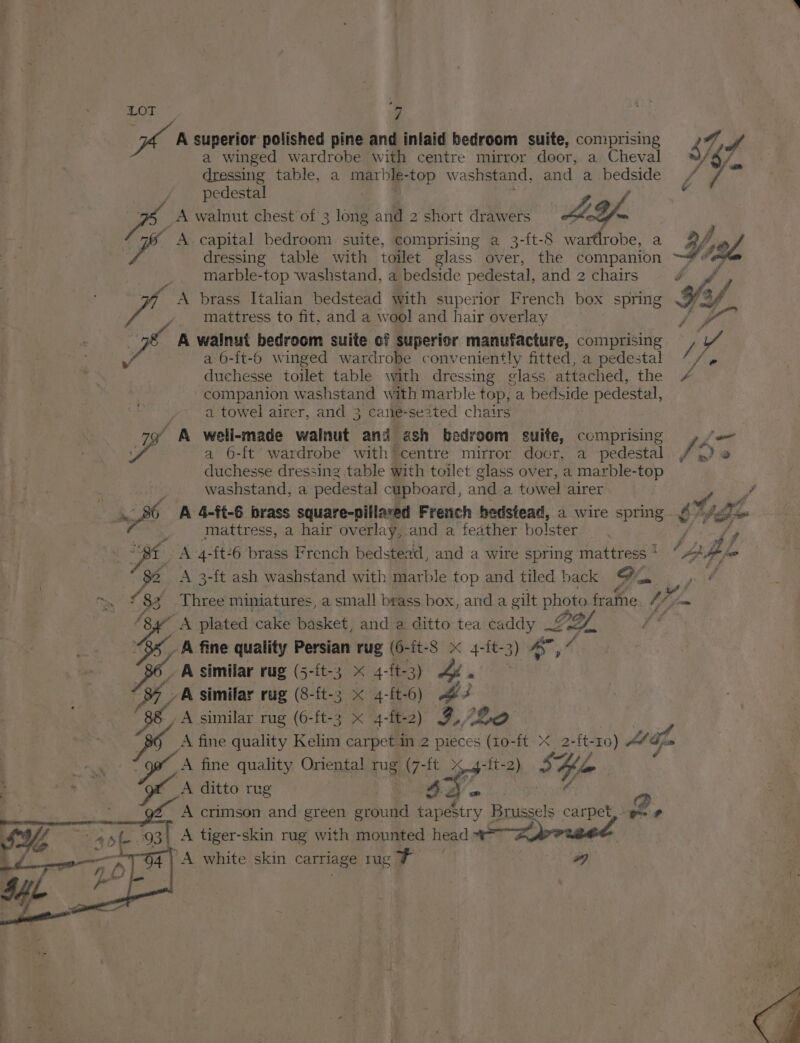 LOT 7
74 A superior polished pine and inlaid bedroom suite, comprising
a winged wardrobe with centre mirror door, a Cheval
dressing table, a marble-top washstand, and a bedside
pedestal
75 A walnut chest of 3 long and 2 short drawers
76 A capital bedroom suite, comprising a 3-ft-8 wardrobe, a
dressing table with toilet glass over, the companion
marble-top washstand, a bedside pedestal, and 2 chairs
77 A brass Italian bedstead with superior French box spring
mattress to fit, and a wool and hair overlay
78 A walnut bedroom suite of superior manufacture, comprising
a 6-ft-6 winged wardrobe conveniently fitted, a pedestal
duchesse toilet table with dressing glass attached, the
companion washstand with marble top, a bedside pedestal,
a towel airer, and 3 cane-seated chairs
79 A well-made walnut and ash bedroom suite, comprising
a 6-ft wardrobe with centre mirror door, a pedestal
duchesse dressing table with toilet glass over, a marble-top
washstand, a pedestal cupboard, and a towel airer
80 A 4-ft-6 brass square-pillared French bedstead, a wire spring
mattress, a hair overlay, and a feather bolster
81 A 4-ft-6 brass French bedstead, and a wire spring mattress
82 A 3-ft ash washstand with marble top and tiled back
83 Three miniatures, a small brass box, and a gilt photo frame
84 A plated cake basket, and a ditto tea caddy
85 A fine quality Persian rug (6-ft-8 × 4-ft-3)
86 A similar rug (5-ft-3 × 4-ft-3)
87 A similar rug (8-ft-3 × 4-ft-6)
88 A similar rug (6-ft-3 × 4-ft-2)
89 A fine quality Kelim carpet in 2 pieces (10-ft × 2-ft-10)
90 A fine quality Oriental rug (7-ft × 4-ft-2)
91 A ditto rug
92 A crimson and green ground tapestry Brussels carpet,
93 A tiger-skin rug with mounted head
94 A white skin carriage rug